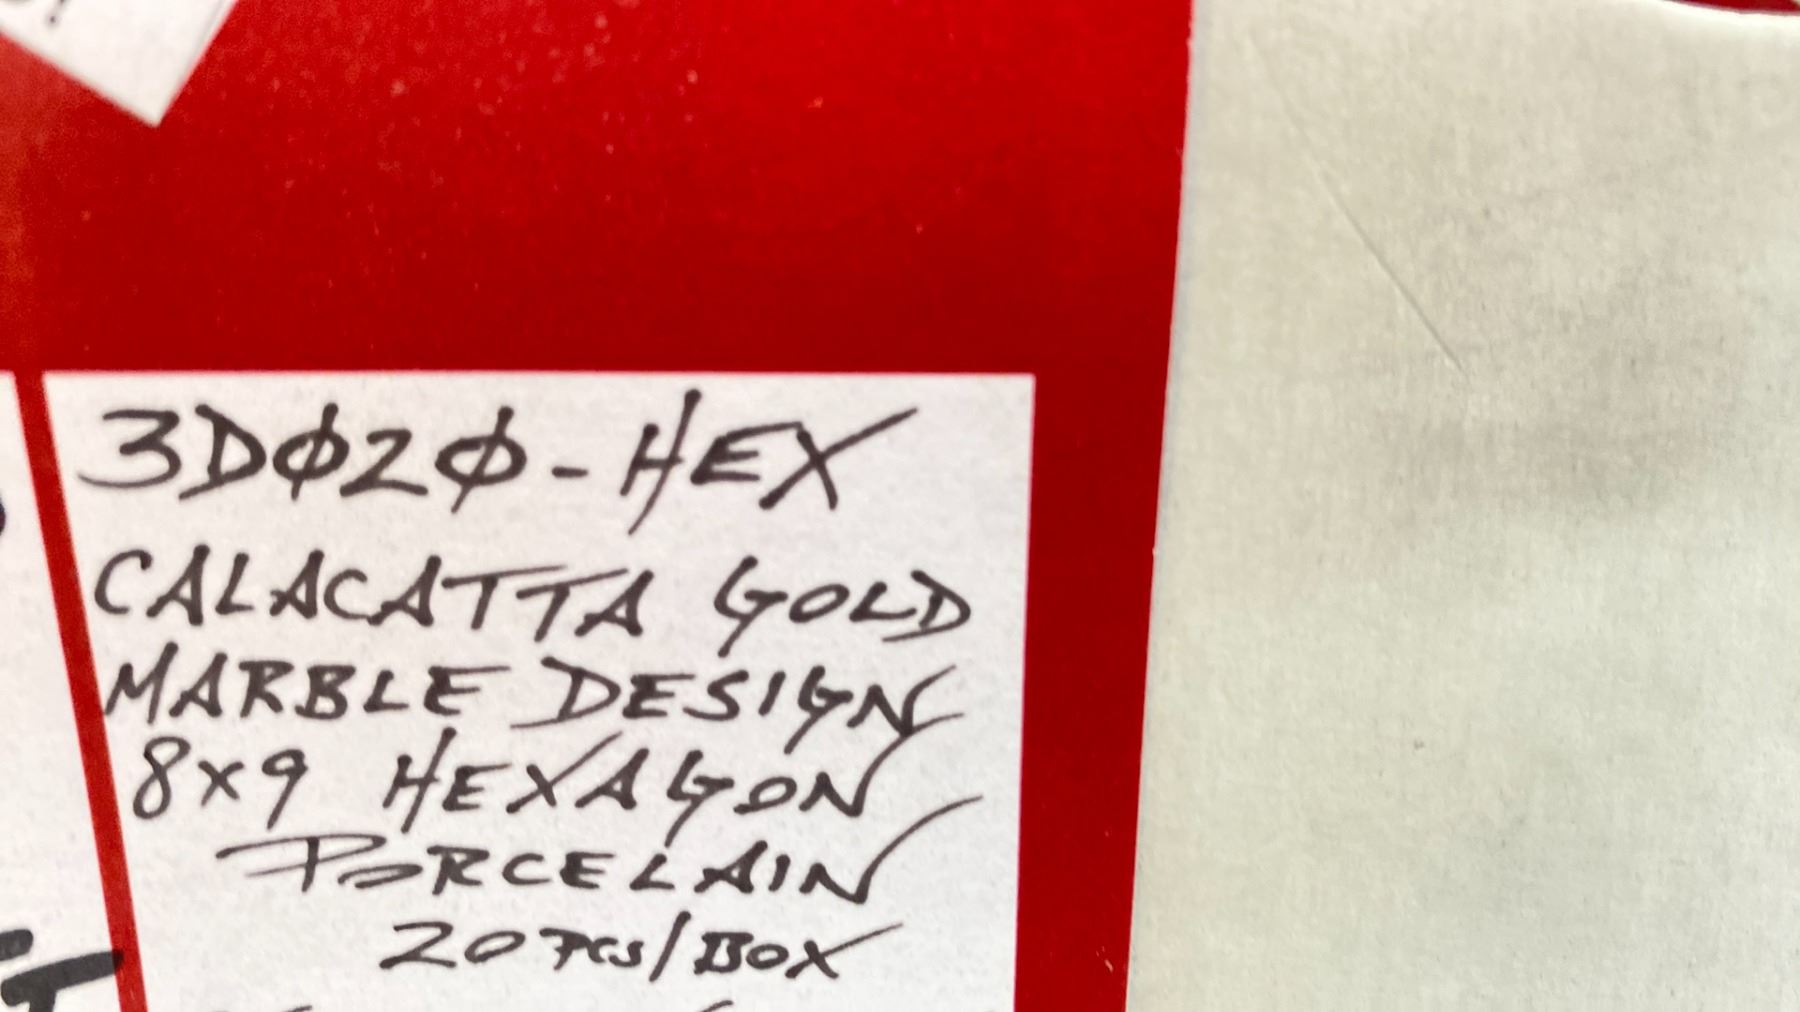 3D020-HEX
CALACATTA GOLD
MARBLE DESIGN
8x9 HEXAGON
PORCELAIN
20 PCS/BOX